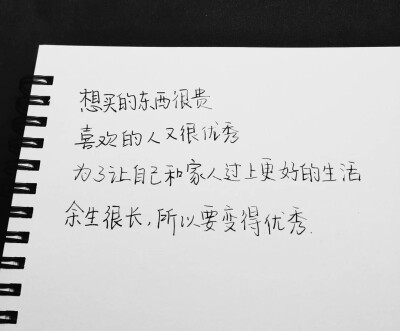 想买的东西很贵
喜欢的人又很优秀
为了让自己和家人过上更好的生活
余生很长,所以要变得优秀.